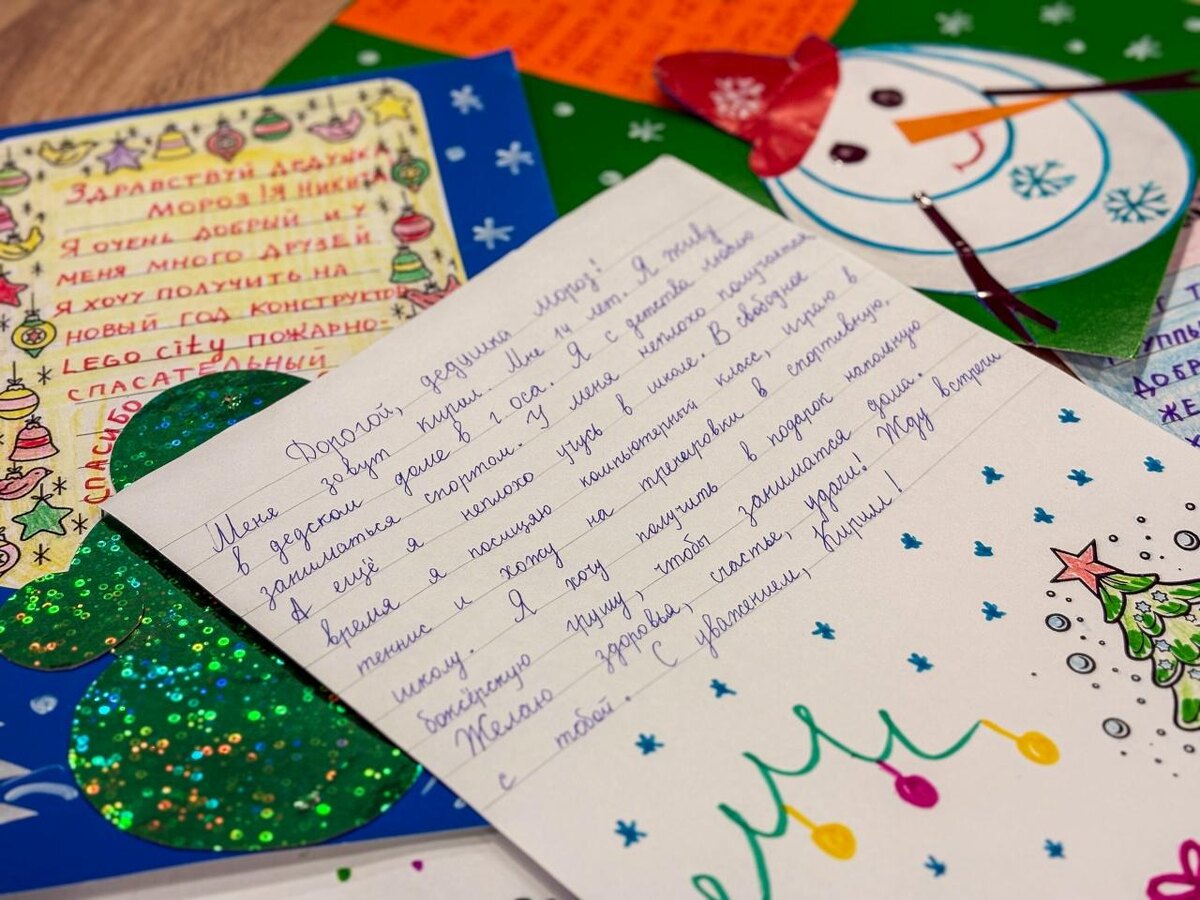 Здравствуй Дедушка
Мороз! Я Никита
Я очень добрый и у
меня много друзей
Я хочу получить на
новый год конструктор
LEGO City пожарно-
спасательный
Спасибо
Дорогой, дедушка мороз!
Меня зовут Кирилл. Мне 14 лет. Я живу
в дедском доме в г оса. Я с детства люблю
заниматься спортом. У меня неплохо получается
А ещё я неплохо учусь в школе. В свободное
время я посищяю компьютерный класс, играю в
теннис и хожу на тренировки в спортивную
школу. Я хочу получить в подарок напольную
боксёрскую грушу, чтобы заниматся дома.
Желаю здоровья, счастье, удачи! Жду встречи
с тобой. С уважением, Кирилл!